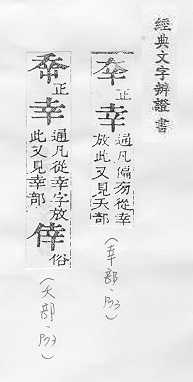 經典文字辨證書
㚔 正
幸 通凡偏㫄從幸
放此又見夭部
(幸部·P33)
正
幸 通凡從幸字放
此又見幸部
倖 俗
(夭部·P33)